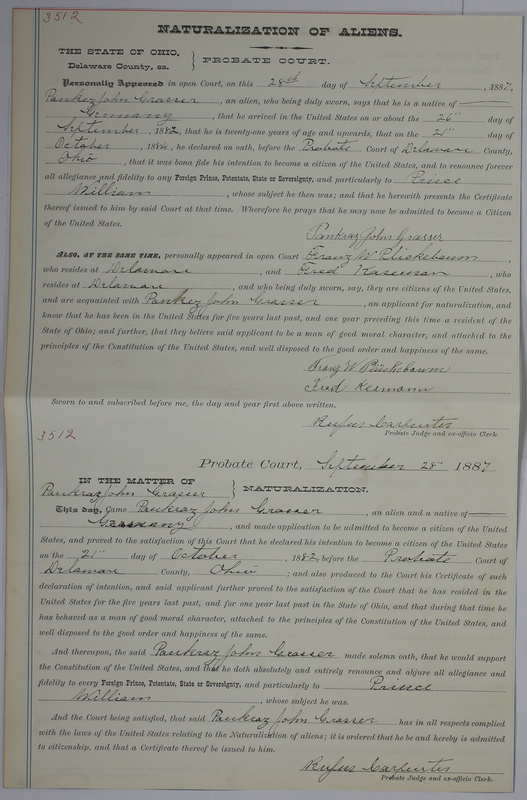 3512
NATURALIZATION OF ALIENS.
THE STATE OF OHIO,
Delaware County, ss.
PROBATE COURT.
Personally Appeared in open Court, on this 28th day of September, 1887,
Pankez John Grasser, an alien, who being duly sworn, says that he is a native of
Germany, that he arrived in the United States on or about the 26" day of
September, 1882, that he is twenty-one years of age and upwards, that on the 21" day of
October, 1884, he declared on oath, before the Probate Court of Delaware County,
Ohio, that it was bona fide his intention to become a citizen of the United States, and to renounce forever
all allegiance and fidelity to any Foreign Prince, Potentate, State or Sovereignty, and particularly to Prince
William, whose subject he then was; and that he herewith presents the Certificate
thereof issued to him by said Court at that time. Wherefore he prays that he may now be admitted to become a Citizen
of the United States.
Pankraz John Grasser
ALSO, AT THE SAME TIME, personally appeared in open Court Franz W Pliskebaum,
who resides at Delaware, and Fred Kaseman, who
resides at Delaware, and who being duly sworn, say, they are citizens of the United States,
and are acquainted with Pankez John Grasser, an applicant for naturalization, and
know that he has been in the United States for five years last past, and one year preceding this time a resident of the
State of Ohio; and further, that they believe said applicant to be a man of good moral character, and attached to the
principles of the Constitution of the United States, and well disposed to the good order and happiness of the same.
Franz W Pückebaum
Fred Kermann
Sworn to and subscribed before me, the day and year first above written.
Rufus Carpenter
Probate Judge and ex-officio Clerk.
3512
Probate Court, September 28" 1887
IN THE MATTER OF
Pankraz John Grasser
NATURALIZATION.
This day, Came Pankraz John Grasser, an alien and a native of
Germany, and made application to be admitted to become a citizen of the United
States, and proved to the satisfaction of this Court that he declared his intention to become a citizen of the United States
on the 21" day of October, 1882, before the Probate Court of
Delaware County, Ohio; and also produced to the Court his Certificate of such
declaration of intention, and said applicant further proved to the satisfaction of the Court that he has resided in the
United States for the five years last past, and for one year last past in the State of Ohio, and that during that time he
has behaved as a man of good moral character, attached to the principles of the Constitution of the United States, and
well disposed to the good order and happiness of the same.
And thereupon, the said Pankraz John Grasser made solemn oath, that he would support
the Constitution of the United States, and that he doth absolutely and entirely renounce and abjure all allegiance and
fidelity to every Foreign Prince, Potentate, State or Sovereignty, and particularly to Prince
William, whose subject he was.
And the Court being satisfied, that said Pankraz John Grasser has in all respects complied
with the laws of the United States relating to the Naturalization of aliens; it is ordered that he be and hereby is admitted
to citizenship, and that a Certificate thereof be issued to him.
Rufus Carpenter
Probate Judge and ex-officio Clerk.